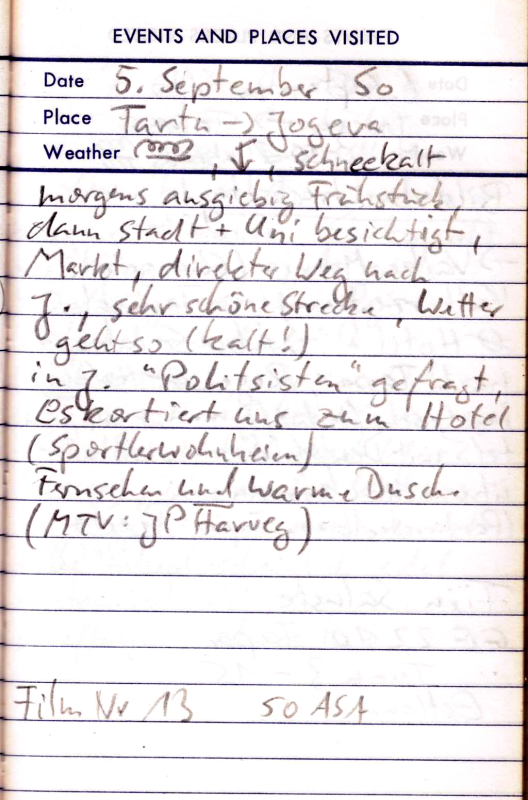 EVENTS AND PLACES VISITED
Date 5. September 50
Place Tartu -> Jogeva
Weather , ↓, schneekalt
morgens ausgiebig Frühstück,
dann Stadt + Uni besichtigt,
Markt, direkter Weg nach
J., sehr schöne Strecke, Wetter
geht so (kalt!)
in J. "Politsisten" gefragt,
eskortiert uns zum Hotel
(Sportlerwohnheim)
Fernsehen und warme Dusche
(MTV: JP Harvey)
Film Nr 13 50 ASA